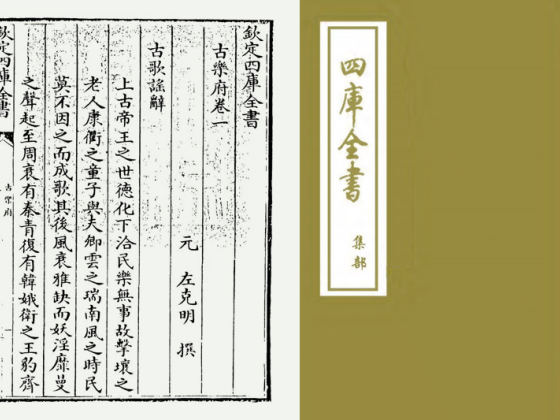 欽定四庫全書
古樂府卷一
元 左克明 撰
古歌謡辭
上古帝王之世徳化下洽民樂無事故擊壤之
老人康衢之童子與夫卿雲之瑞南風之時民
莫不因之而成歌其後風衰雅缺而妖淫靡曼
之聲起至周衰有秦青復有韓娥衛之王豹齊
欽定四庫全書
古樂府
一
四庫全書
集部